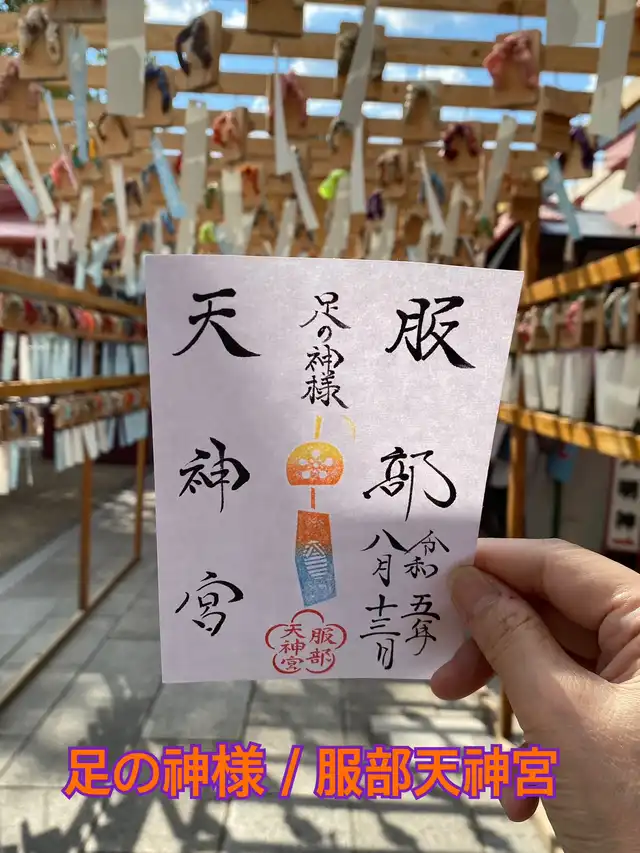 服部
令和五年
八月十三日
足の神様
天神宮
服部
天神宮
足の神様 / 服部天神宮